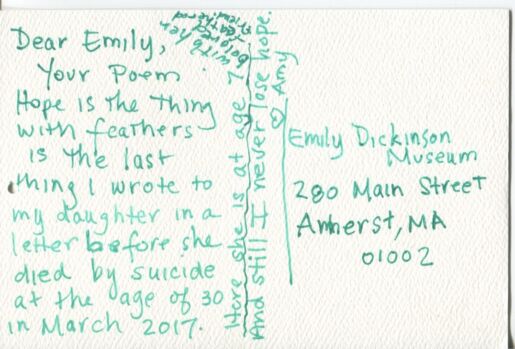 Dear Emily,
Your Poem
Hope is the Thing
with feathers
is the last
thing I wrote to
my daughter in a
letter before she
died by suicide
at the age of 30
in March 2017.
Here she is at age 7
with her
beloved
feathered
friend
And still I never lose hope.
♡ Amy
Emily Dickinson
Museum
280 Main Street
Amherst, MA
01002